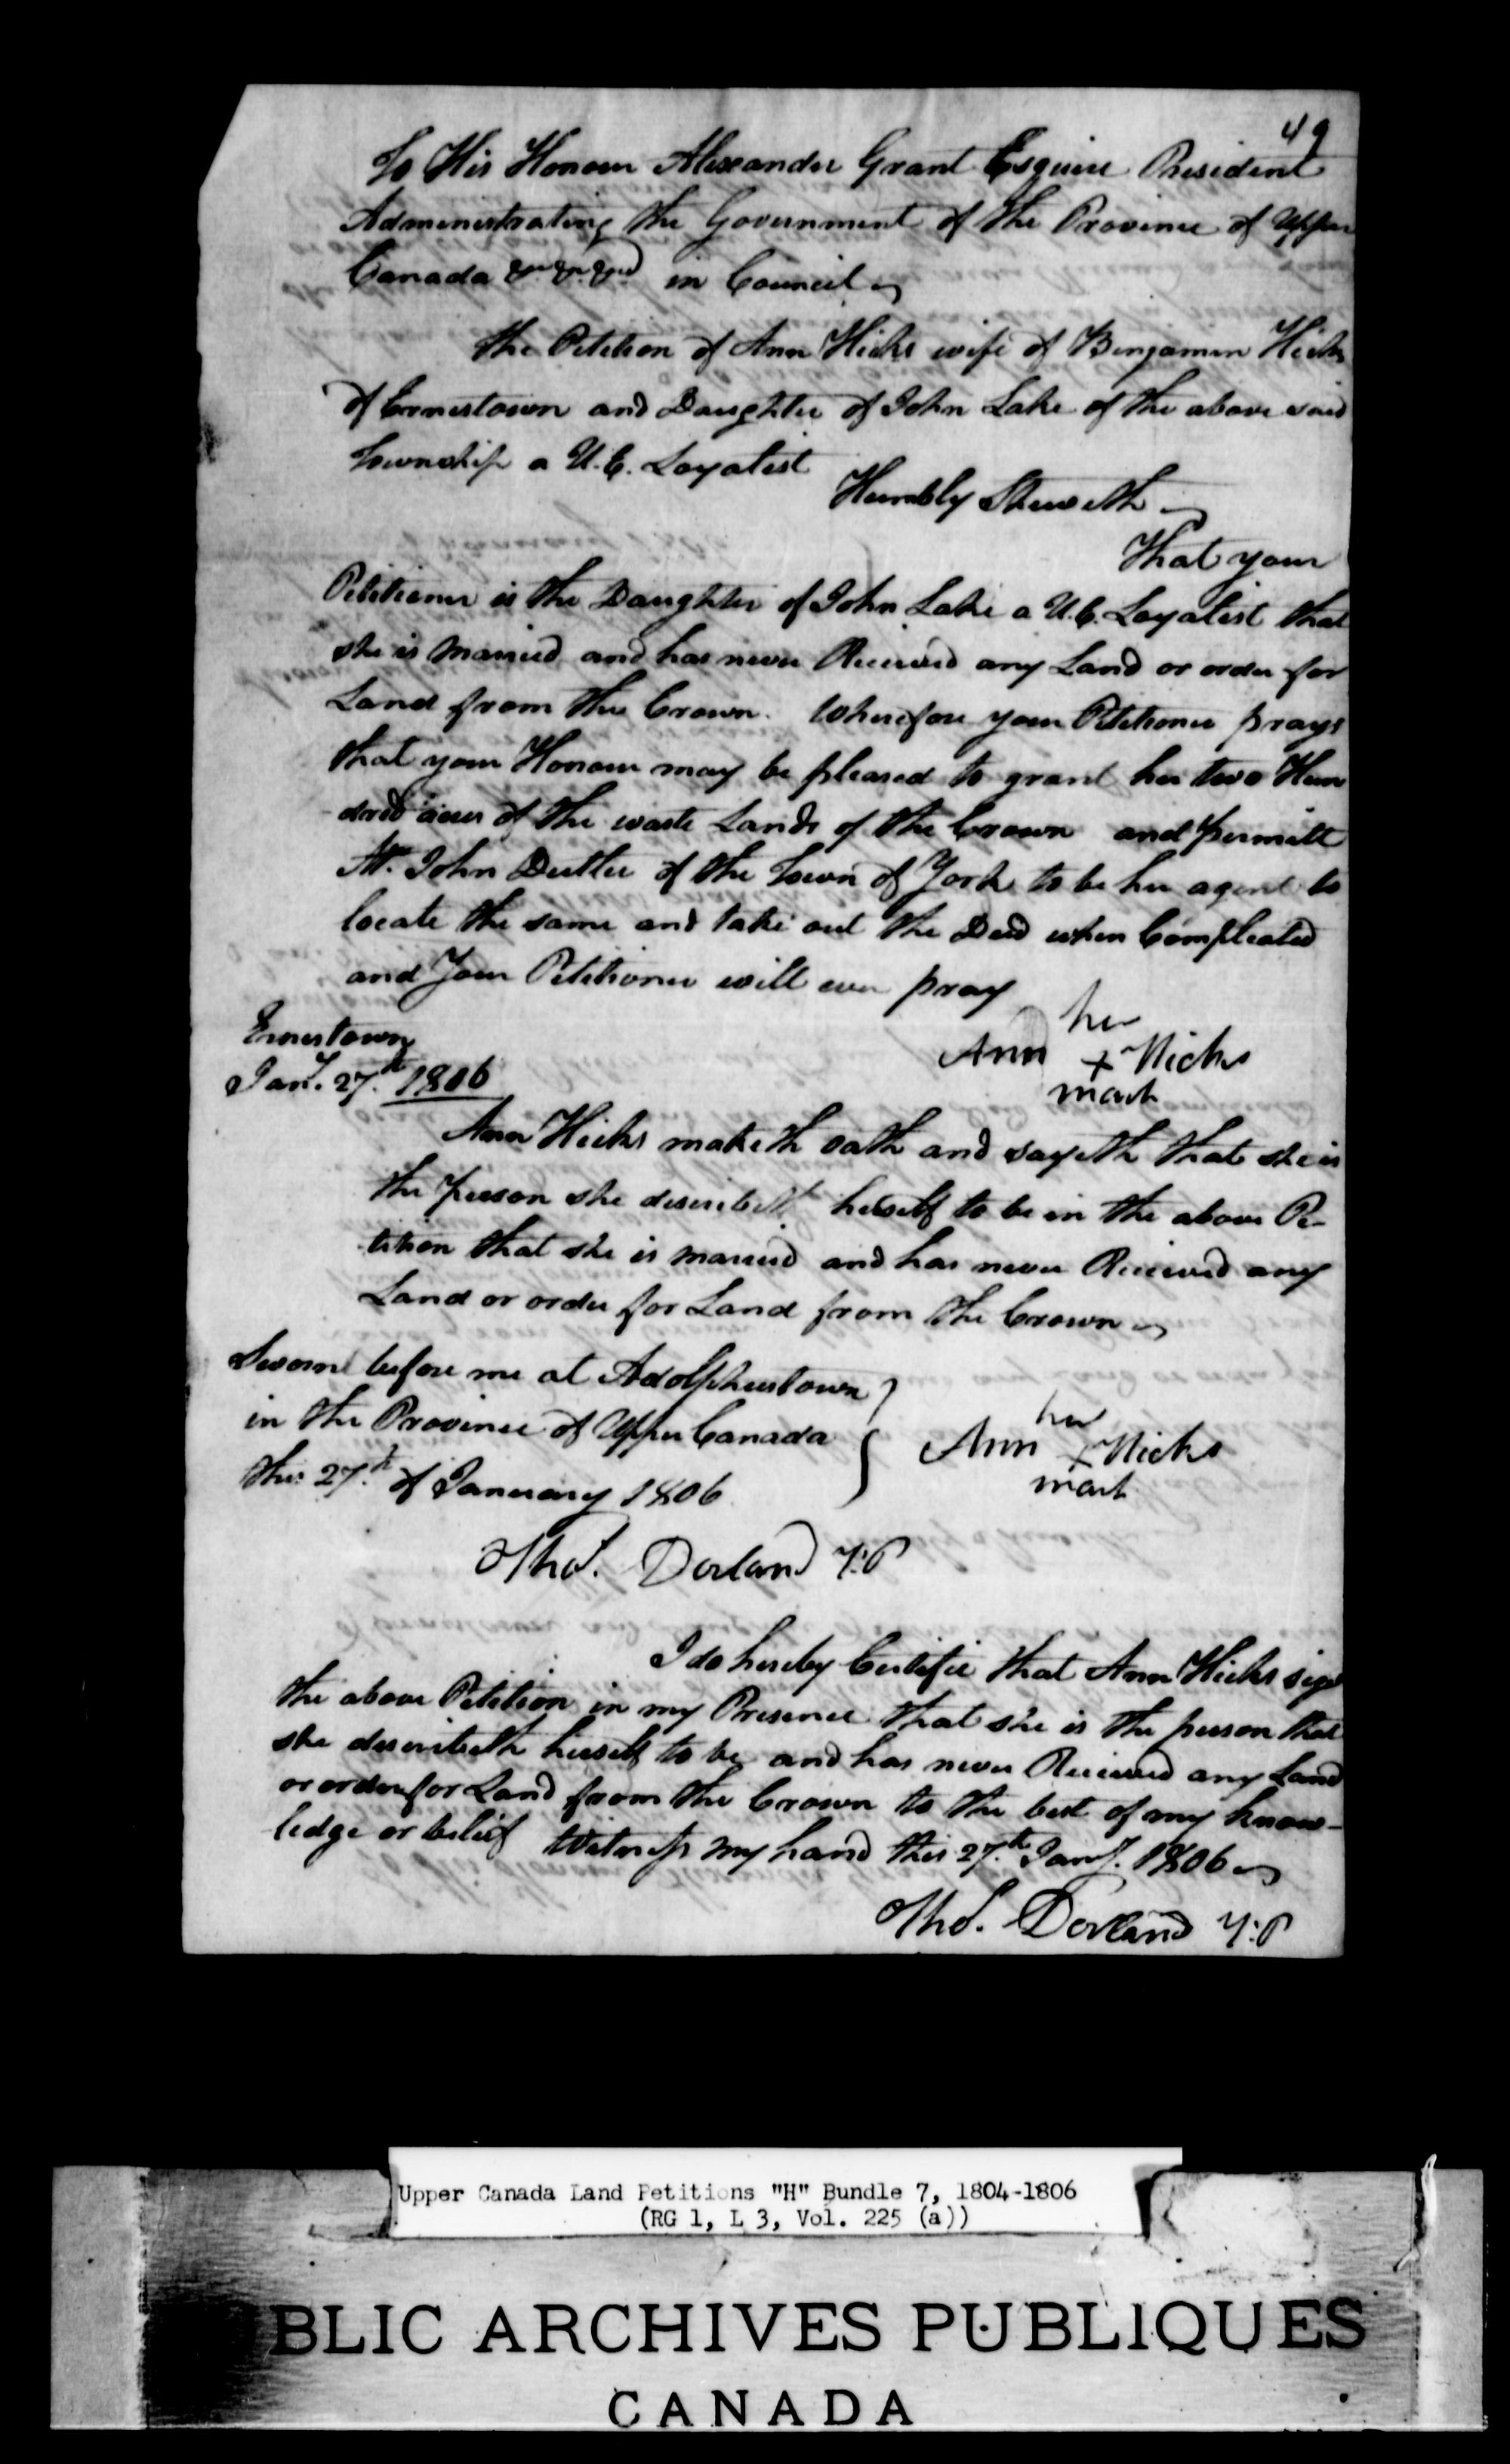 49
To His Honour Alexander Grant Esquire President
Administrating the Government of the Province of Upper
Canada &c. &c. &c. in Council
The Petition of Ann Hicks wife of Benjamin Hicks
of Ernestown and Daughter of John Lake of the above said
Township a U.E. Loyalist
Humbly Sheweth
That your
Petitioner is the Daughter of John Lake a U.E. Loyalist that
she is Married and has never Received any Land or order for
Land from the Crown. Wherefore your Petitioner prays
that your Honour may be pleased to grant her two Hun
dred acres of the waste Lands of the Crown and permitt
Mr. John Detler of the Town of York to be her agent to
locate the same and take out the Deed when Compleated
and Your Petitioner will ever pray
Ernestown
Jany. 27th. 1806
her
Ann + Hicks
mark
Ann Hicks maketh oath and sayeth that she is
the person she describeth herself to be in the above Pe-
tition that she is married and has never Received any
Land or order for Land from the Crown
Sworn before me at Adolphustown
in the Province of Upper Canada
this 27th. of January 1806
her
Ann + Hicks
mark
Thos. Dorland J:P
I do hereby Certifie that Ann Hicks sigd
the above Petition in my Presence that she is the person that
she describeth herself to be and has never Received any Land
or order for Land from the Crown to the best of my know-
ledge or belief Witness my hand this 27th. Jany. 1806
Thos. Dorland J:P
Upper Canada Land Petitions "H" Bundle 7, 1804-1806
(RG 1, L 3, Vol. 225 (a))
BLIC ARCHIVES PUBLIQUES
CANADA